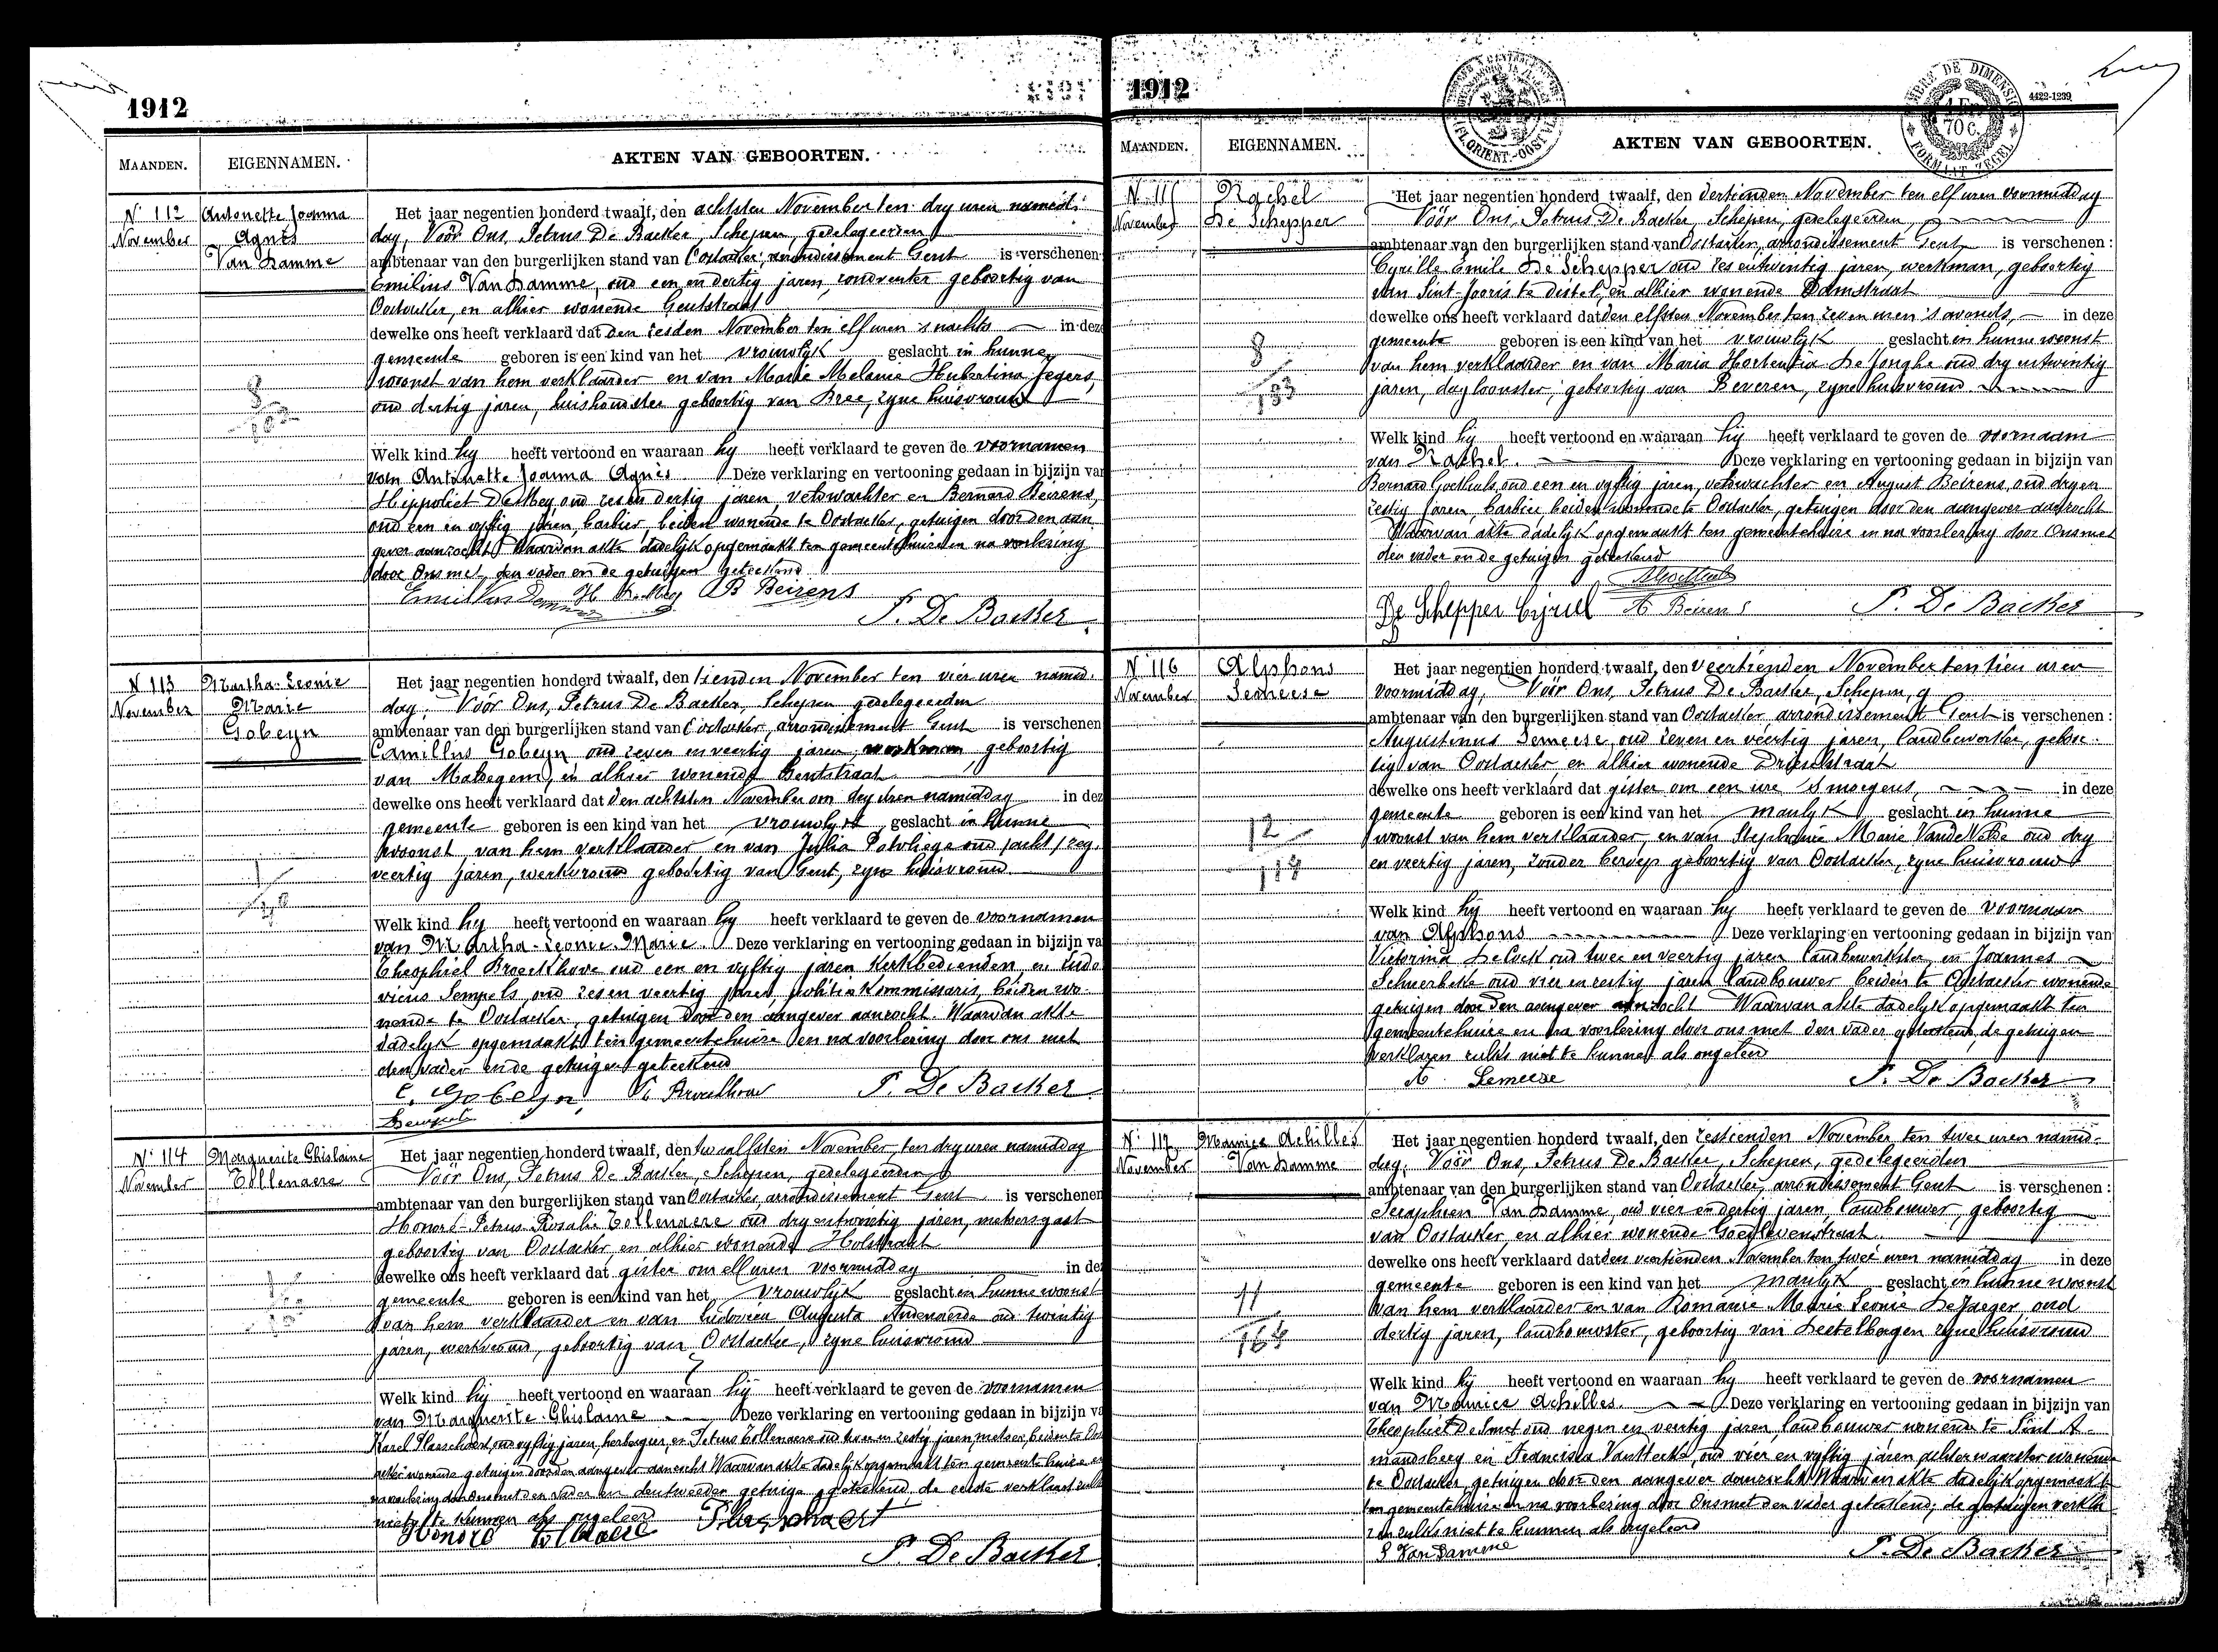 1912
MAANDEN.
EIGENNAMEN.
AKTEN VAN GEBOORTEN.
N. 112
November
Antonette Joanna
Agnès
Van Damme
Het jaar negentien honderd twaalf, den achtsten November ten dry uren namid-
dag, Vóór Ons, Petrus De Backer, Schepen, gedelegeerden
ambtenaar van den burgerlijken stand van Oostacker, arrondissement Gent is verschenen
Emilius Van Damme, oud een en dertig jaren, geboortig van
Oostacker, en alhier wonende Gentstraat
dewelke ons heeft verklaard dat den zesden November ten elf uren 's nachts in deze
gemeente geboren is een kind van het vrouwlyk geslacht in hunne
woonst van hem verklaarder en van Marie Melanie Hubertina Jegers,
oud dertig jaren, huishoudster geboortig van Bree, zyne huisvrouw
Welk kind hy heeft vertoond en waaraan hy heeft verklaard te geven de voornamen
van Antonette Joanna Agnès. Deze verklaring en vertooning gedaan in bijzijn van
Hippoliet De Mey, oud zes en dertig jaren, veldwachter en Bernard Beirens,
oud een en vyftig jaren, barbier beiden wonende te Oostacker, getuigen door den aan-
gever aanzocht Waarvan akte dadelyk opgemaakt ten gemeentehuize en na voorlezing
door Ons met den vader en de getuigen geteekend
B Beirens
P. De Backer
N 113
November
Martha-Leonie
Marie
Gobeyn
Het jaar negentien honderd twaalf, den tienden November ten vier uren namid-
dag, Vóór Ons, Petrus De Backer, Schepen gedelegeerden
ambtenaar van den burgerlijken stand van Oostacker, arrondissement Gent is verschenen
Camillus Gobeyn oud zeven en veertig jaren, werkman, geboortig
van Massegem, en alhier wonende Gentstraat
dewelke ons heeft verklaard dat den achtsten November om dry uren namiddag in dez
gemeente geboren is een kind van het vrouwlyk geslacht in hunne
woonst van hem verklaarder en van Julia Potvliege oud
veertig jaren, werkvrouw geboortig van Gent, zyne huisvrouw
Welk kind hy heeft vertoond en waaraan hy heeft verklaard te geven de voornamen
van Martha-Leonie-Marie. Deze verklaring en vertooning gedaan in bijzijn va
Theophiel Broeckhove oud een en vyftig jaren kerkbedienden, en Ludo
vicus Sempels, oud zes en veertig jaren, politie kommissaris, beiden wo-
nende te Oostacker, getuigen door den aangever aanzocht. Waarvan akte
dadelyk opgemaakt ten gemeentehuize en na voorlezing door ons met
den vader en de getuigen geteekend
C. Gobeyn
P. De Backer
N. 114
November
Marguerite Ghislaine
Tollenaere
Het jaar negentien honderd twaalf, den twaalfsten November, ten dry uren namiddag
Vóór Ons, Petrus De Backer, Schepen, gedelegeerden
ambtenaar van den burgerlijken stand van Oostacker, arrondissement Gent is verschenen
Honoré-Petrus-Rosalie Tollenaere oud dry en twintig jaren, metsersgast
geboortig van Oostacker, en alhier wonende Holstraat
dewelke ons heeft verklaard dat gister om elf uren voormiddag in de
gemeente geboren is een kind van het vrouwlyk geslacht in hunne woonst
van hem verklaarder en van Ludovica Augusta Audenaerde oud twintig
jaren, werkvrouw, geboortig van Oostacker, zyne huisvrouw
Welk kind hij heeft vertoond en waaraan hij heeft verklaard te geven de voornamen
van Marguerite-Ghislaine Deze verklaring en vertooning gedaan in bijzijn va
Karel Plasschaert, oud vyftig jaren, herbergier, en Petrus Tollenaere oud twee en zestig jaren, metser, beiden te Oos
acker wonende getuigen door den aangever aanzocht Waarvan akte dadelyk opgemaakt ten gemeente huize en
na voorlezing door Ons met den vader en den tweeden getuige geteekend, de eerste verklaart zulks
niet te kunnen als ongeleerd
Honoré Tollenaere Plasschaert
P. De Backer
1912
4422-1239
MAANDEN.
EIGENNAMEN.
AKTEN VAN GEBOORTEN.
N. 115
November
Rachel
De Schepper
Het jaar negentien honderd twaalf, den dertienden November ten elf uren voormiddag
Vóór Ons, Petrus De Backer Schepen, gedelegeerden,
ambtenaar van den burgerlijken stand van Oostacker, arrondissement Gent is verschenen :
Cyrille Emile De Schepper oud zes en twintig jaren, werkman, geboortig
van Sint-Jooris te distel, en alhier wonende Damstraat
dewelke ons heeft verklaard dat den elfsten November ten zeven uren 's avonds, in deze
gemeente geboren is een kind van het vrouwlyk geslacht in hunne woonst
van hem verklaarder en van Maria Hortentia De Jonghe oud dry en twintig
jaren, dagloonster, geboortig van Beveren, zyne huisvrouw
8
183
Welk kind hij heeft vertoond en waaraan hij heeft verklaard te geven de voornaam
van Rachel. Deze verklaring en vertooning gedaan in bijzijn van
Bernard Goethals, oud een en vyftig jaren, veldwachter en August Beirens, oud dry en
zestig jaren, barbier beiden wonende te Oostacker, getuigen door den aangever aanzocht
Waarvan akte dadelyk opgemaakt ten gemeentehuize en na voorlezing door Ons met
den vader en de getuigen geteekend
De Schepper Cijriel A Beirens
P. De Backer
N 116
November
Alphons
Lemeese
Het jaar negentien honderd twaalf, den veertienden November ten tien uren
voormiddag, Vóór Ons, Petrus De Backer, Schepen, g
ambtenaar van den burgerlijken stand van Oostacker, arrondissement Gent is verschenen :
Augustinus Lemeese, oud zeven en veertig jaren, landbewerker, geboor-
tig van Oostacker, en alhier wonende Drieselstraat
dewelke ons heeft verklaard dat gister om een ure 's morgens, in deze
gemeente geboren is een kind van het manlyk geslacht in hunne
woonst van hem verklaarder, en van Stephanie Marie Vande Walle oud dry
en veertig jaren, zonder beroep geboortig van Oostacker, zyne huisvrouw
12
114
Welk kind hij heeft vertoond en waaraan hy heeft verklaard te geven de voornaam
van Alphons Deze verklaring en vertooning gedaan in bijzijn van
Victorina oud twee en veertig jaren landbewerkster, en Joannes
Scheerbeke oud vier en zestig jaren landbouwer beiden te Oostacker wonende
getuigen door den aangever aanzocht Waarvan akte dadelyk opgemaakt ten
gemeentehuize en na voorlezing door ons met den vader geteekend, de getuigen
verklaren zulks niet te kunnen als ongeleerd
A. Lemeese
P. De Backer
N. 117
November
Maurice Achilles
Van Damme
Het jaar negentien honderd twaalf, den zestienden November ten twee uren namid-
dag, Vóór Ons, Petrus De Backer, Schepen, gedelegeerden
ambtenaar van den burgerlijken stand van Oostacker, arrondissement Gent is verschenen :
Seraphien Van Damme, oud vier en dertig jaren, landbouwer, geboortig
van Oostacker, en alhier wonende Goedlevenstraat.
dewelke ons heeft verklaard dat den veertienden November ten twee uren namiddag in deze
gemeente geboren is een kind van het manlyk geslacht in hunne woonst
van hem verklaarder en van Romanie Marie Leonie De Jaeger oud
dertig jaren, landbouwster, geboortig van Destelbergen zyne huisvrouw
11
164
Welk kind hy heeft vertoond en waaraan hy heeft verklaard te geven de voornamen
van Maurice Achilles. Deze verklaring en vertooning gedaan in bijzijn van
Theophiel De Smet oud negen en veertig jaren, landbouwer wonende te Sint A-
mandsberg en Francisca Van Hecke, oud vier en vyftig jaren achterwaarster wonende
te Oostacker, getuigen door den aangever aanzocht Waarvan akte dadelyk opgemaakt
ten gemeentehuize en na voorlezing door Ons met den vader geteekend, de getuigen verkla
ren zulks niet te kunnen als ongeleerd
S Van Damme
P. De Backer